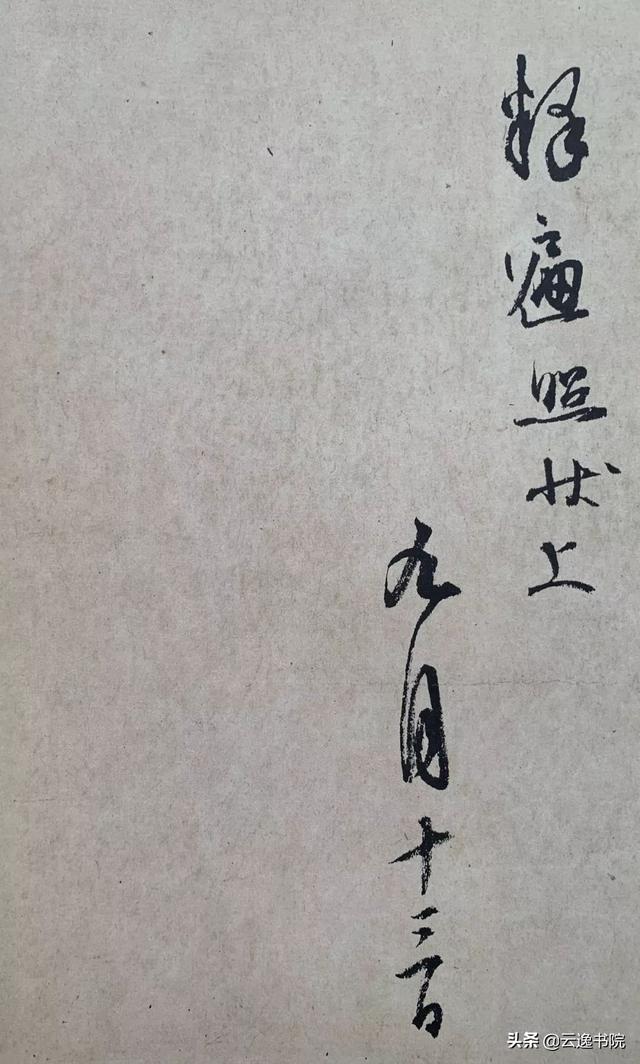 釋遍照状上
九月十三日
头条 @云逸书院